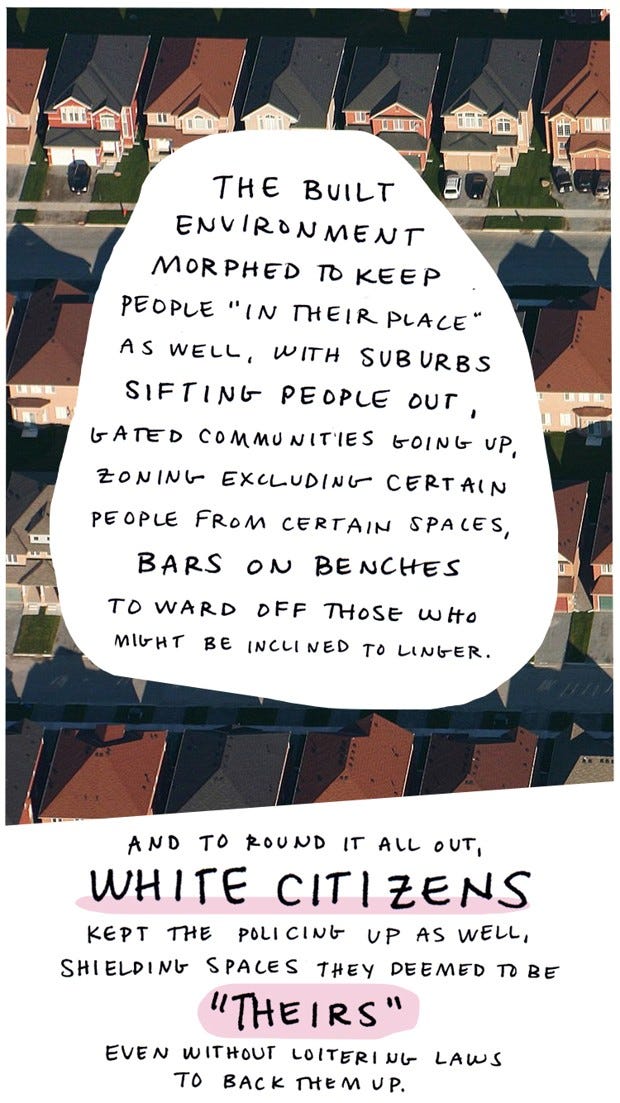 THE BUILT
ENVIRONMENT
MORPHED TO KEEP
PEOPLE "IN THEIR PLACE"
AS WELL, WITH SUBURBS
SIFTING PEOPLE OUT,
GATED COMMUNITIES GOING UP,
ZONING EXCLUDING CERTAIN
PEOPLE FROM CERTAIN SPACES,
BARS ON BENCHES
TO WARD OFF THOSE WHO
MIGHT BE INCLINED TO LINGER.
AND TO ROUND IT ALL OUT,
WHITE CITIZENS
KEPT THE POLICING UP AS WELL,
SHIELDING SPACES THEY DEEMED TO BE
"THEIRS"
EVEN WITHOUT LOITERING LAWS
TO BACK THEM UP.